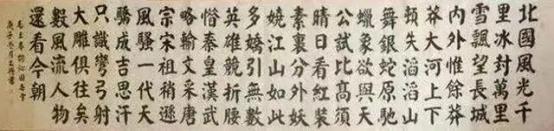 北國風光千
里冰封萬里
雪飄望長城
內外惟餘莽
莽大河上下
頓失滔滔山
舞銀蛇原馳
蠟象欲與天
公試比高須
晴日看紅裝
素裹分外妖
嬈江山如此
多嬌引無數
英雄競折腰
惜秦皇漢武
略輸文采唐
宗宋祖稍遜
風騷一代天
驕成吉思汗
只識彎弓射
大雕俱往矣
數風流人物
還看今朝
毛主席詞沁園春雪